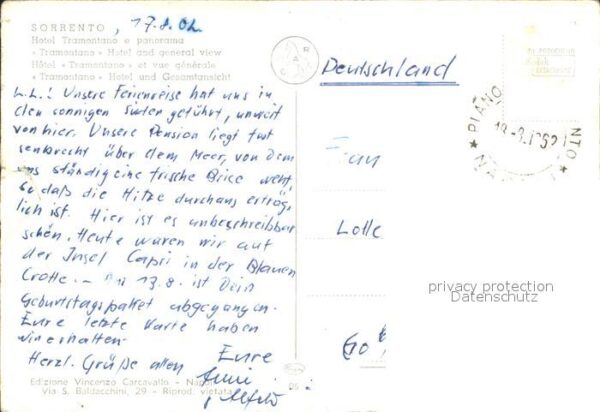 SORRENTO, 17.8.62
Hotel Tramontano e panorama
« Tramontano » Hotel and general view
Hôtel « Tramontano » et vue générale
« Tramontano » Hotel und Gesamtansicht
L.L.! Unsere Ferienreise hat uns in
den sonnigen Süden geführt, unweit
von hier. Unsere Pension liegt fast
senkrecht über dem Meer, von dem
uns ständig eine frische Brise weht,
so daß die Hitze durchaus erträg-
lich ist. Hier ist es unbeschreibbar
schön. Heute waren wir auf
der Insel Capri in der Blauen
Grotte. - Am 13.8. ist Dein
Geburtstagspaket abgegangen.
Eure letzte Karte haben
wir erhalten.
Herzl. Grüße allen Eure
Edizione Vincenzo Carcavallo - Napoli
Via S. Baldacchini, 29 - Riprod. vietata
DS
CRA
Deutschland
Frau
Lotte
Go
PIANO
NTO
NA
privacy protection
Datenschutz